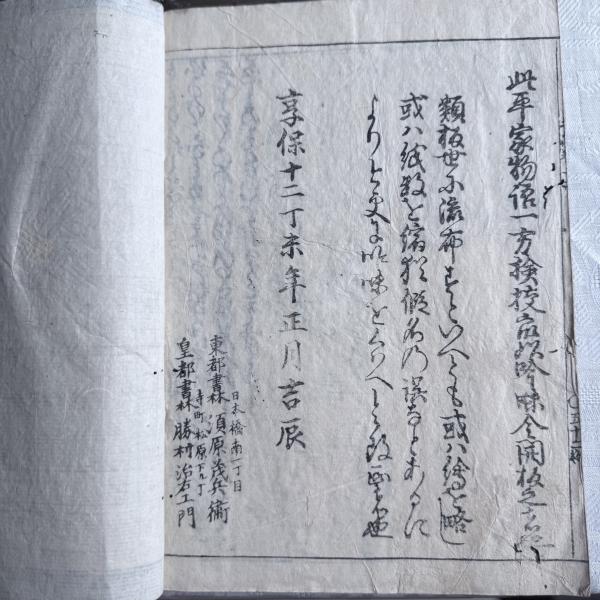 此平家物語一方検校衆以吟味令開板之者也
類板世に流布すといへとも或ハ絵を略し
或ハ紙数を縮猶仮名の誤なとあるに
よりて今更に吟味をくハへしめ改
享保十二丁未年正月吉辰
日本橋南一丁目
東都書林 須原茂兵衛
寺町松原下ル丁
皇都書林 勝村治右エ門